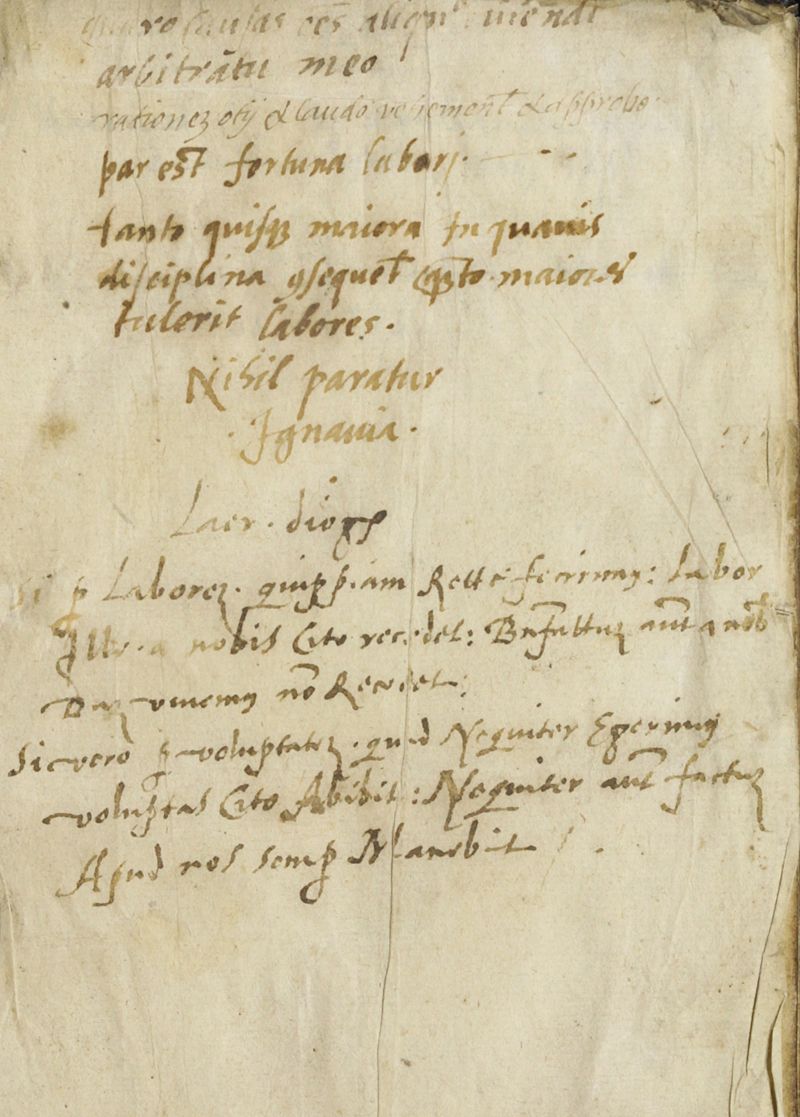 quero causas cēs aliqn̄ inendi
arbitrātu meo
rationez otij & laudo vehement̄ & approbo
par est̄ fortuna labori.
tanto quisqꝫ maiora in quauis
disciplina ꝯsequet̄ qƺto maiores
tulerit labores.
Nihil paratur
. Ignauia .
Laer. diog
Si ꝑ Laborez. quippiam Recte fecrimꝰ: Labor
Ille a nobis Cito recedet: Bn̄factuz aut̄ a nob̄
Duz viuemꝰ nō Recedet:
Si vero ꝑ voluptatez. quid Nequiter Egerimꝰ
voluptas Cito Abibit: Nequiter aut̄ factuz
Apud nos semꝑ Manebit /.